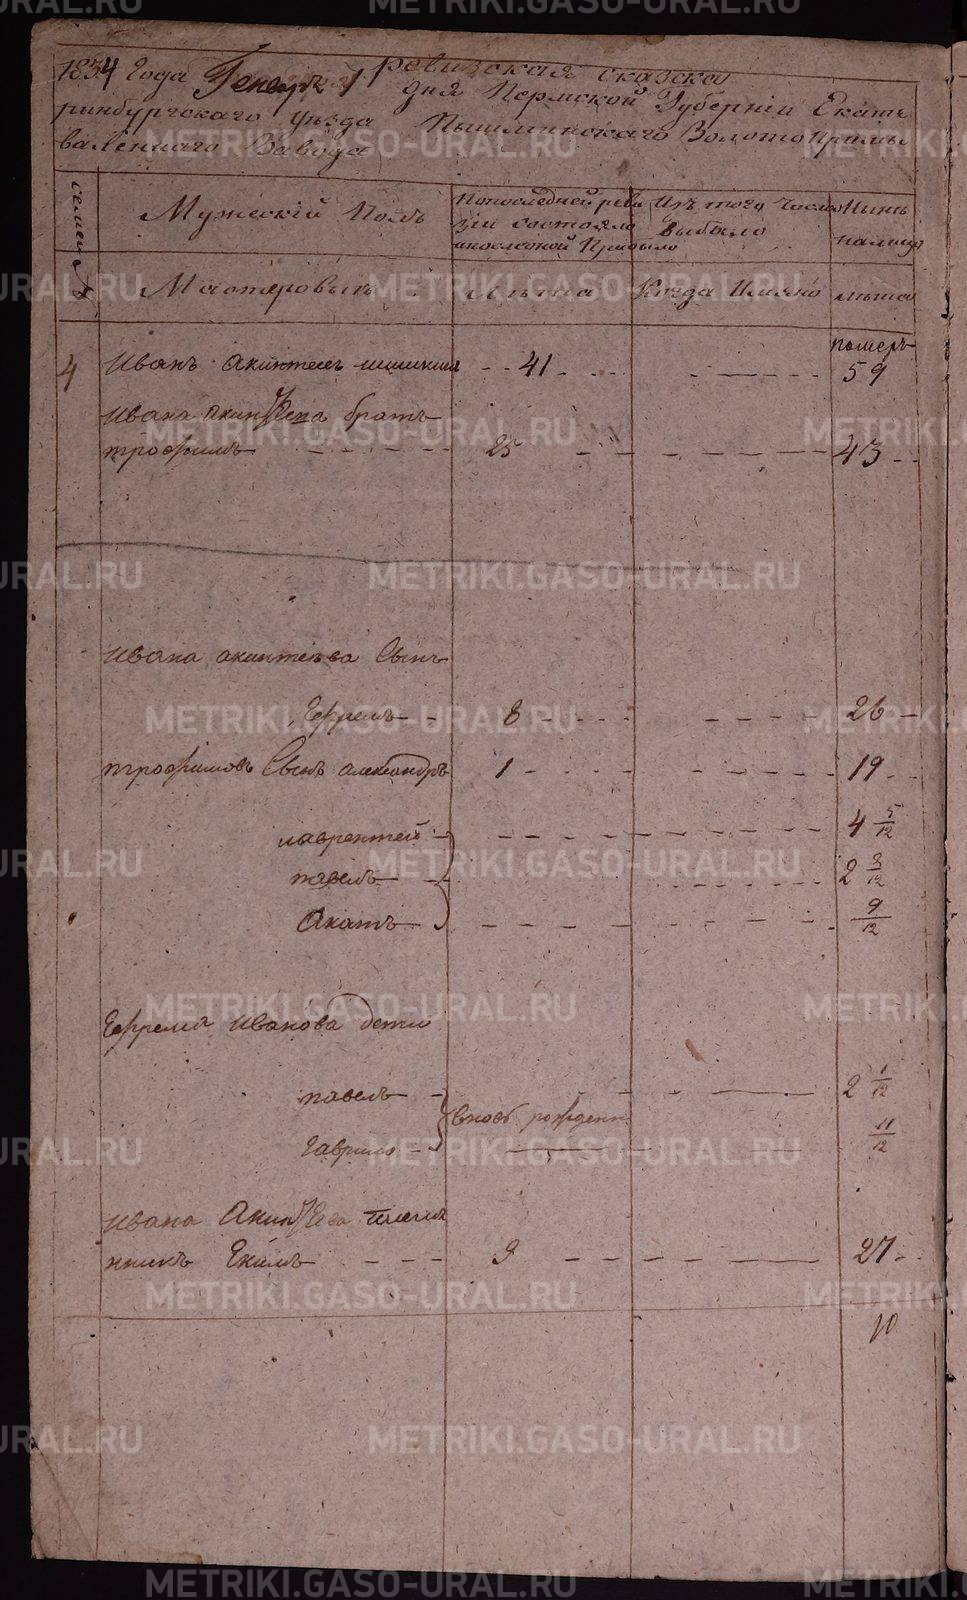 ревизская сказка
1834 года Генваря 1 дня Пермской Губернiи Екате
ринбургскаго уезда Пышминскаго Золотопромы
валеннаго Завода
семеи №
Мужескiй Полъ
Попоследней реви
зiи состояло
ипослеоной Прибыло
Изъ того Числа
Выбыло
Нынь
налицо
Мастеровыхъ
лъта
Когда Имяно
лъта
4 Иванъ Акинтеевъ шишкинъ 41 померъ 59
Ивана Акинтеева братъ
трофимъ 25 43
Ивана акинтеева Сынъ
Ефремъ 8 26
трофимовъ Сынъ александръ 1 19
лаврентей 4 5/12
павелъ 2 8/12
Акатъ 9/12
Ефрема Иванова дети
павелъ 2 1/12
Вновь рожденн
Гаврило 11/12
Ивана Акинтеева племян
никъ Екимъ 9 27
10
METRIKI.GASO-URAL.RU